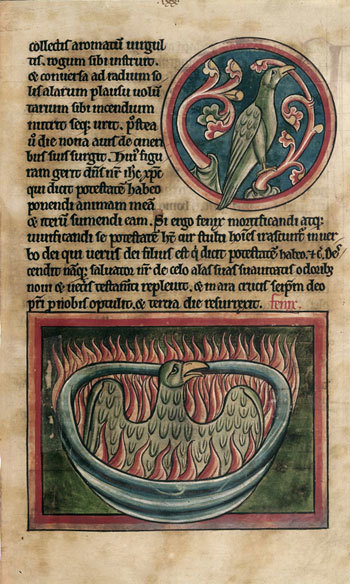 collectis aromatū uirgul
tis. rogum sibi instruit.
& conuersa ad radium so
lis alarum plausu uolū
tarium sibi incendium
nutrit seq; urit. postea
ů die nona auis de cineri
bus suis surgit. Huiꝰ figu
ram gerit dñs nr̄ ihc̄ xp̄c
qui dicit potestatē habeo
ponendi animam meā
& iterum sumendi eam. Si ergo fenix mortificandi atq;
uiuificandi se potestatē h̄t cur stulti hoīes irascunt̄ in uer
bo dei qui uerus dei filius est q̇ dicit potestatē habeo. & c̄. Des
cendit nāq; saluator nr̄ de celo alas suas suauitatis odorib;
noui & ueteris testam̄ti repleuit. & in ara crucis seip̄m deo
pr̄i ꝓ nobis optulit. & tercia die resurrexit. fenix